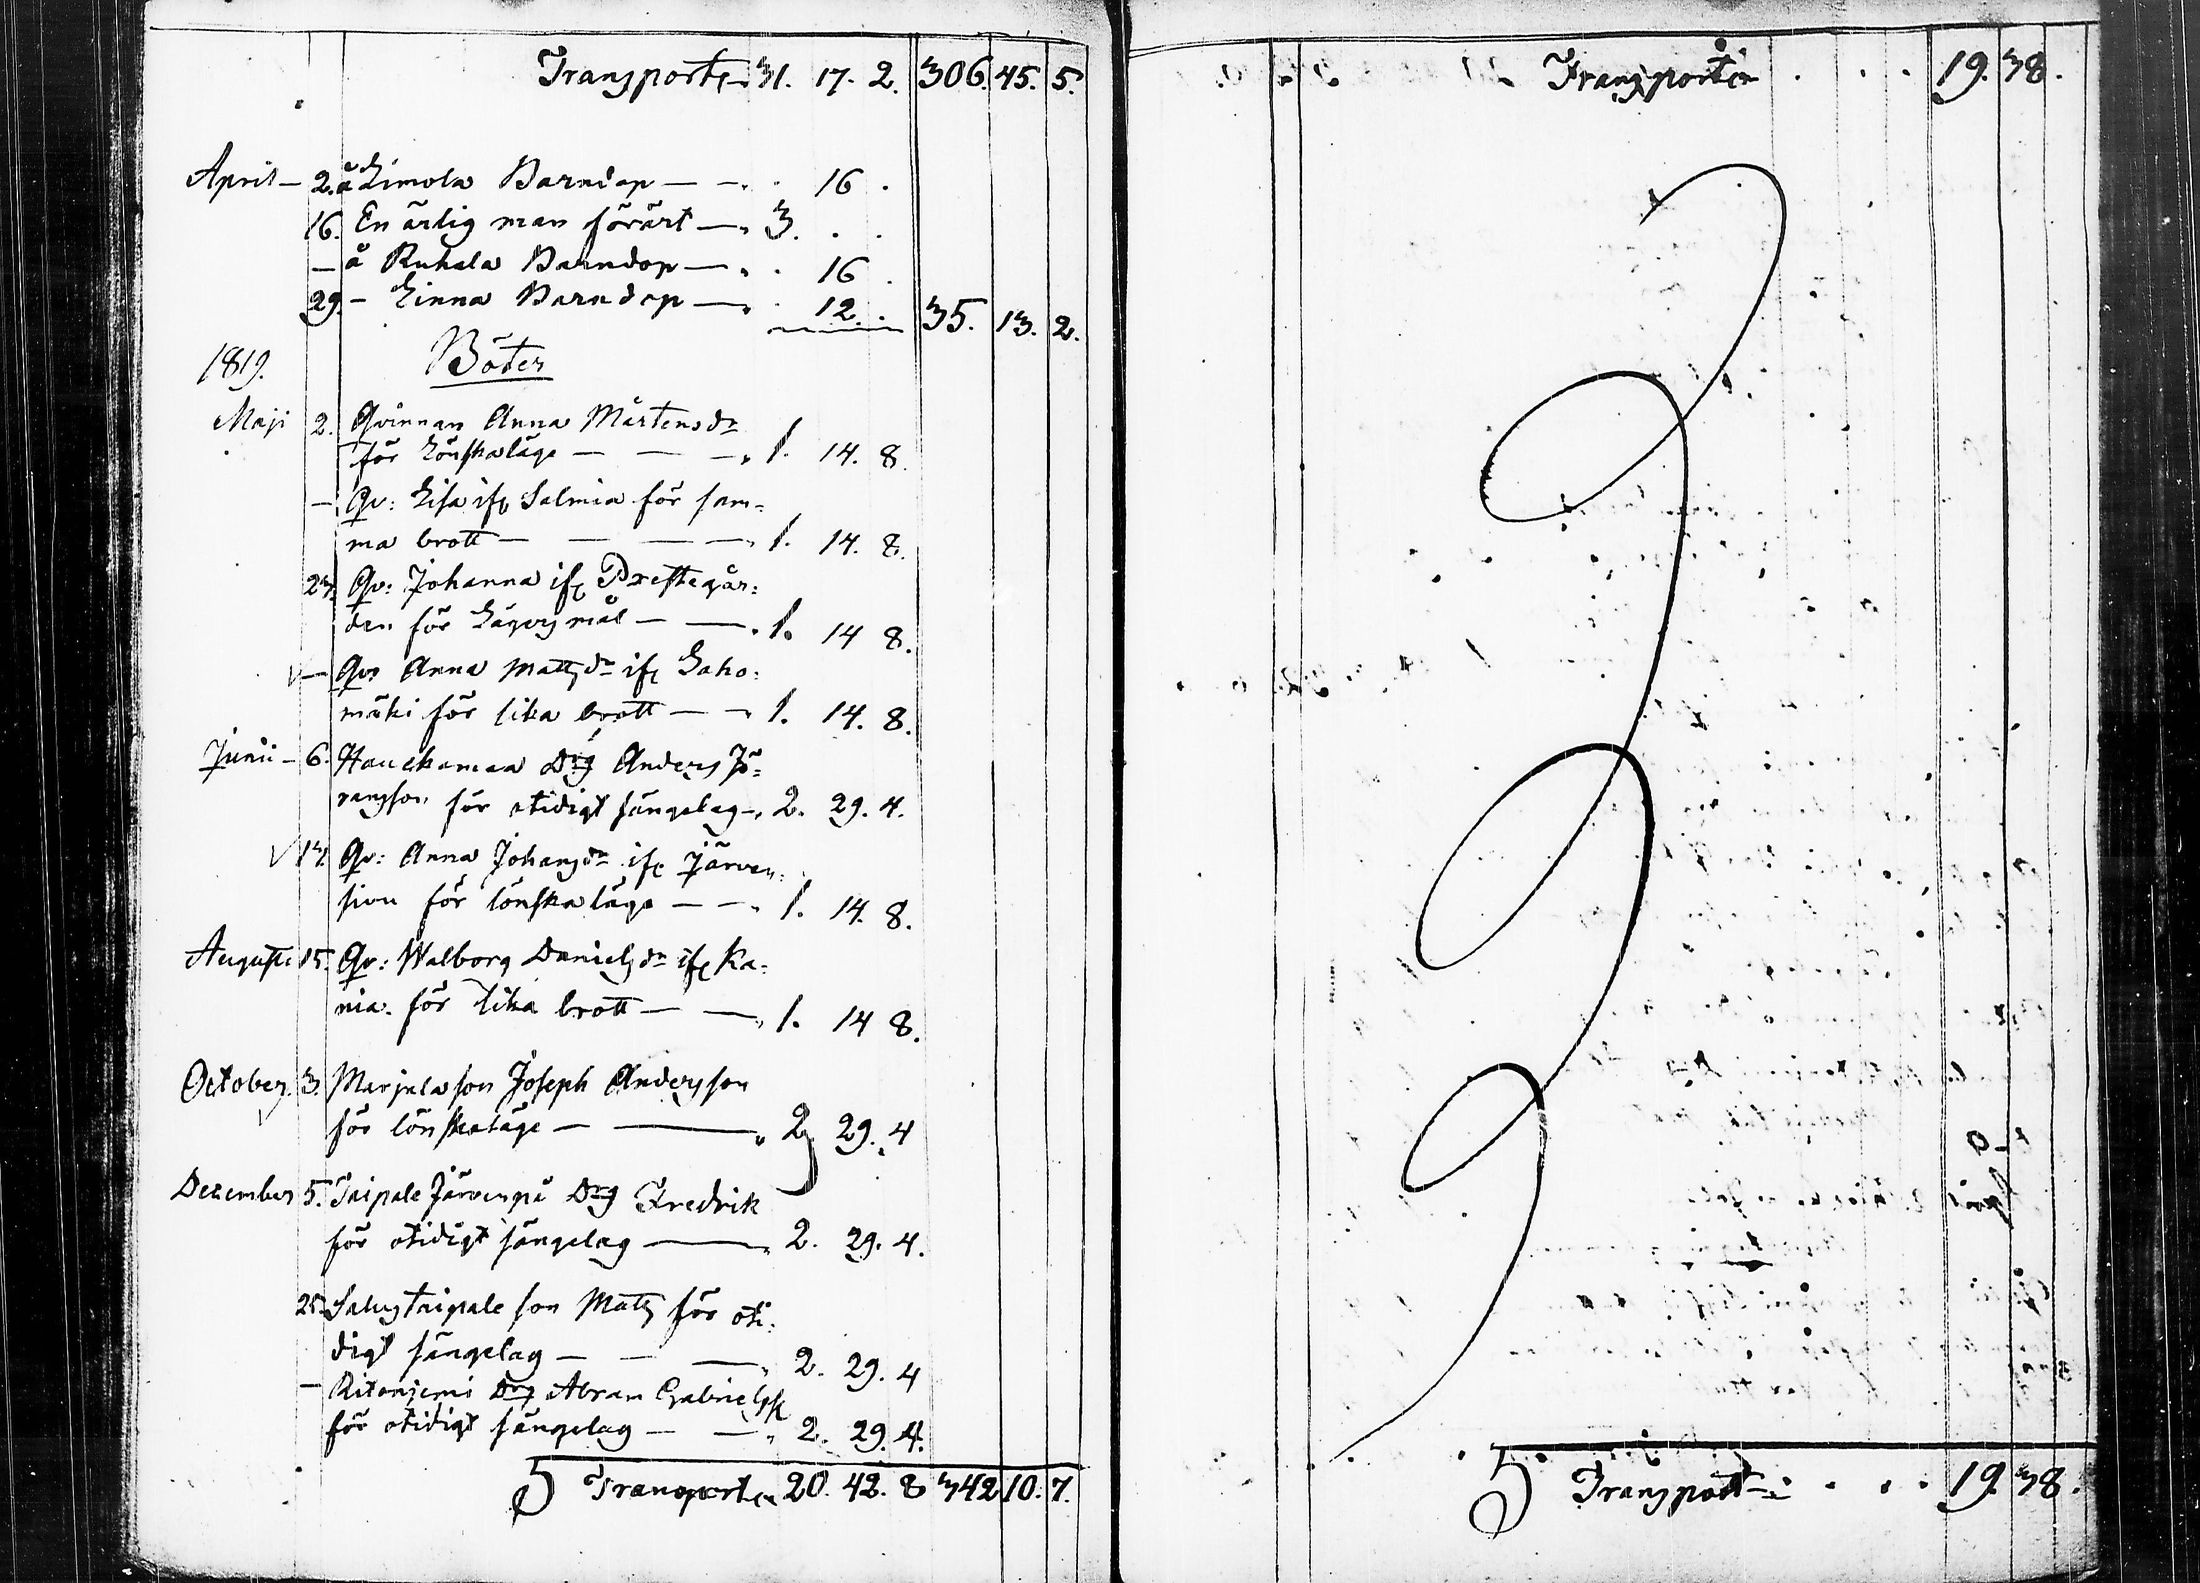 Transport 31. 17. 2. 306. 45. 5.
April — 2. å Limola Barndop — — . 16 .
16. En ärlig man förärt — 3. . .
— å Ruhala Barndop — . 16 .
29. — Linna Barndop — . 12. . 35. 13. 2.
1819. Böter
Maji 2. Qvinnan Anna Mårtensdr
för Lönskaläge — — — 1. 14. 8.
— Qv: Lisa ifr Salmia för sam=
ma brott — — — — 1. 14. 8.
23. Qv: Johanna ifr Prestegår=
den för Lägersmål — — 1. 14 8.
— Qv: Anna Mattsdr ifr Laho=
mäki för lika brott — — 1. 14. 8.
Junii — 6. Hauckamaa Drg Anders Jö=
ransson för otidigt sängelag — 2. 29. 4.
13. Qv: Anna Johansdr ifr Järven=
sivu för lönskaläge — — 1. 14. 8.
Augusti 15. Qv: Walborg Danielsdr ifr Ka=
nia för lika brott — — 1. 14 8.
October 3. Marjala son Joseph Andersson
för lönskaläge — — 2. 29. 4
December 5. Taipale Järvenpä Drg Fredrik
för otidigt sängelag — 2. 29. 4.
25. Salustaipale son Matts för oti=
digt sängelag — — — 2. 29. 4
— Ritoniemi Drg Abram Gabrielss
för otidigt sängelag — — 2. 29. 4.
Transport 20. 42. 8 342 10. 7.
Transport . . . 19. 38.
Transport . . . 19. 38.